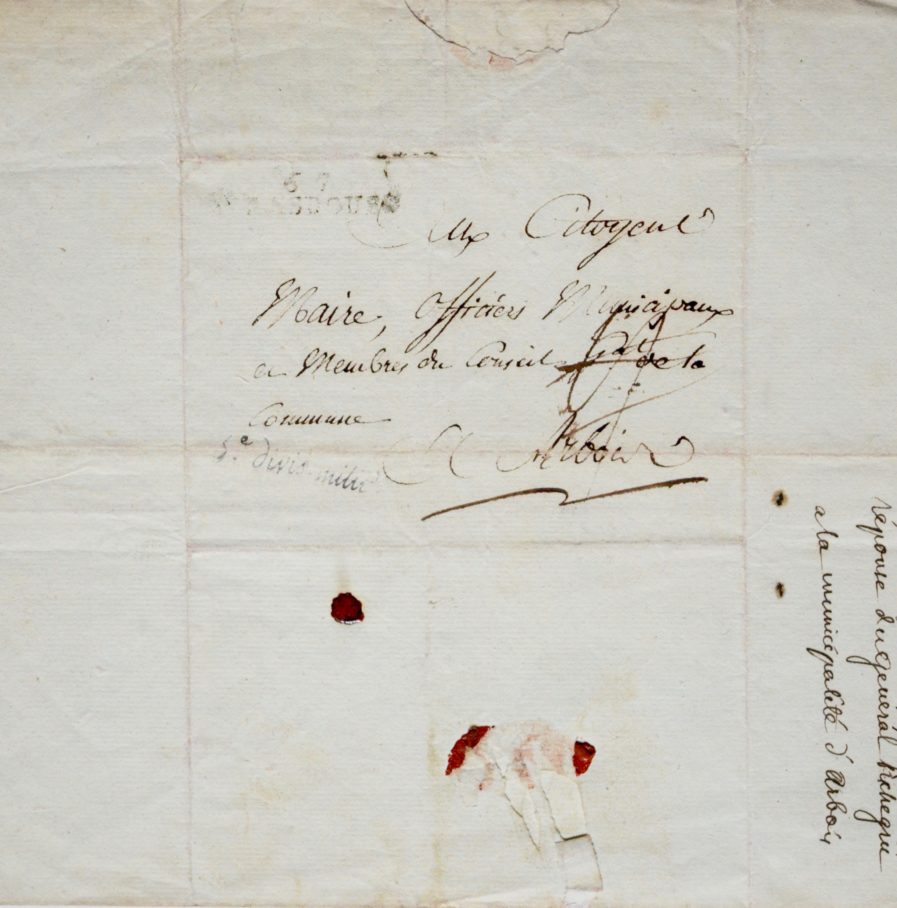 67
STRASBOURG
Aux Citoyens
Maire, Officiers Municipaux
et Membres du Conseil Gal de la
Commune
A Arbois
5.e divis. milit.
réponse du général Pichegru
a la municipalité d'arbois